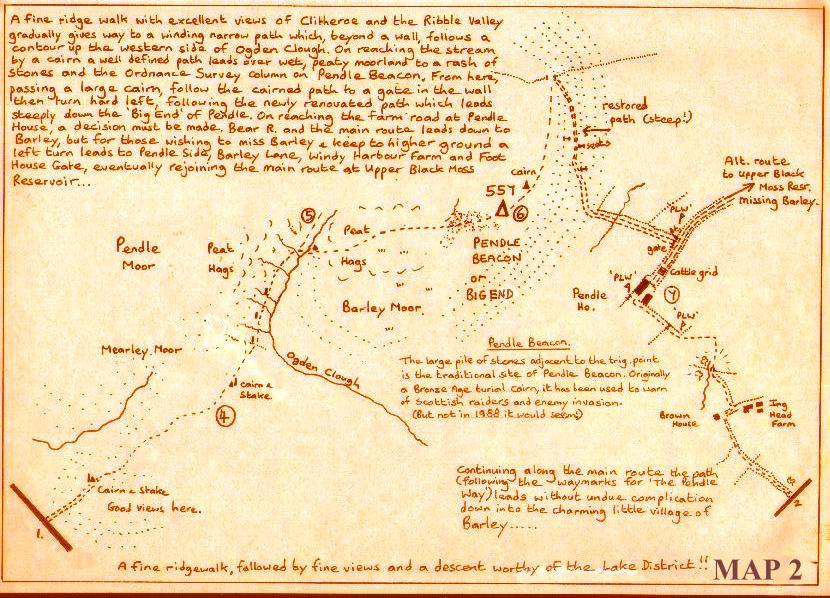 A fine ridge walk with excellent views of Clitheroe and the Ribble Valley
gradually gives way to a winding narrow path which, beyond a wall, follows a
contour up the western side of Ogden Clough. On reaching the stream
by a cairn a well defined path leads over wet, peaty moorland to a rash of
stones and the Ordnance Survey column on Pendle Beacon. From here,
passing a large cairn, follow the cairned path to a gate in the wall
then turn hard left, following the newly renovated path which leads
steeply down the 'Big End' of Pendle. On reaching the farm road at Pendle
House, a decision must be made. Bear R. and the main route leads down to
Barley, but for those wishing to miss Barley & keep to higher ground a
left turn leads to Pendle Side, Barley Lane, Windy Harbour Farm and Foot
House Gate, eventually rejoining the main route at Upper Black Moss
Reservoir...
restored
path (steep!)
seats
Alt. route
to Upper Black
Moss Resr.
missing Barley.
cairn
557
6
'PLW'
gate
5
Peat
Hags
Pendle
Moor
Peat
Hags
PENDLE
BEACON
or
BIG END
Cattle grid
'PLW'
Pendle
Ho.
Y
'PLW'
Barley Moor
Mearley Moor
Ogden Clough
cairn &
Stake
4
Pendle Beacon.
The large pile of stones adjacent to the trig. point
is the traditional site of Pendle Beacon. Originally
a Bronze Age burial Cairn, it has been used to warn
of Scottish raiders and enemy invasion.
(But not in 1988 it would seem)
Brown
House
Ing
Head
Farm
Cairn & Stake
Good views here.
1.
Continuing along the main route the path
(following the waymarks for 'The Pendle
Way) leads without undue complication
down into the charming little village of
Barley.....
2
A fine ridgewalk, followed by fine views and a descent worthy of the Lake District!!
MAP 2